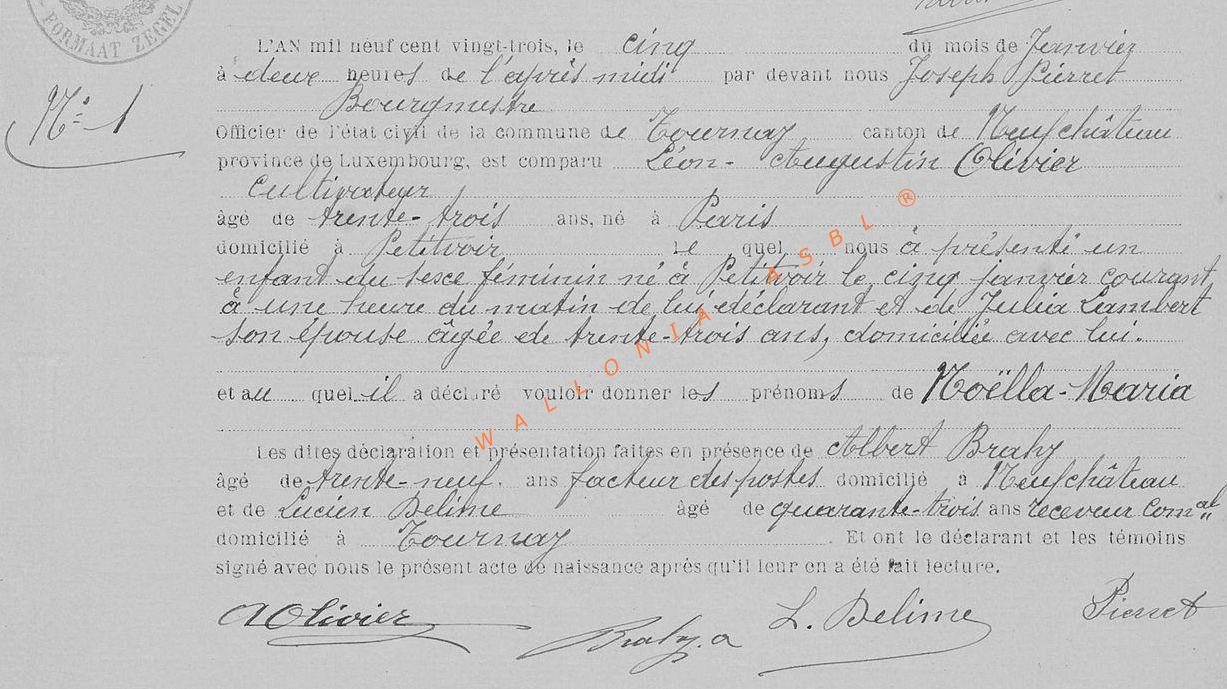 FORMAAT ZEGEL
L'AN mil neuf cent vingt-trois, le cinq du mois de Janvier
à deux heures de l'après midi par devant nous Joseph Pierret
Bourgmestre
N° 1
Officier de l'état civil de la commune de Tournay canton de Neufchâteau
province de Luxembourg, est comparu Léon-Augustin Olivier
Cultivateur
âgé de trente-trois ans, né à Paris
domicilié à Petitvoir le quel nous à présenté un
enfant du sexe féminin né à Petitvoir le cinq janvier courant
à une heure du matin de lui déclarant et de Julia Lambert
son épouse âgée de trente-trois ans, domiciliée avec lui.
et au quel il a déclaré vouloir donner les prénoms de Noëlla-Maria
Les dites déclaration et présentation faites en présence de Albert Brahy
âgé de trente-neuf ans facteur des postes domicilié à Neufchâteau
et de Lucien Delime âgé de quarante-trois ans receveur Comal
domicilié à Tournay. Et ont le déclarant et les témoins
signé avec nous le présent acte de naissance après qu'il leur en a été fait lecture.
AOlivier
Brahy. a
L. Delime
Pierret
WALLONIA ASBL ®